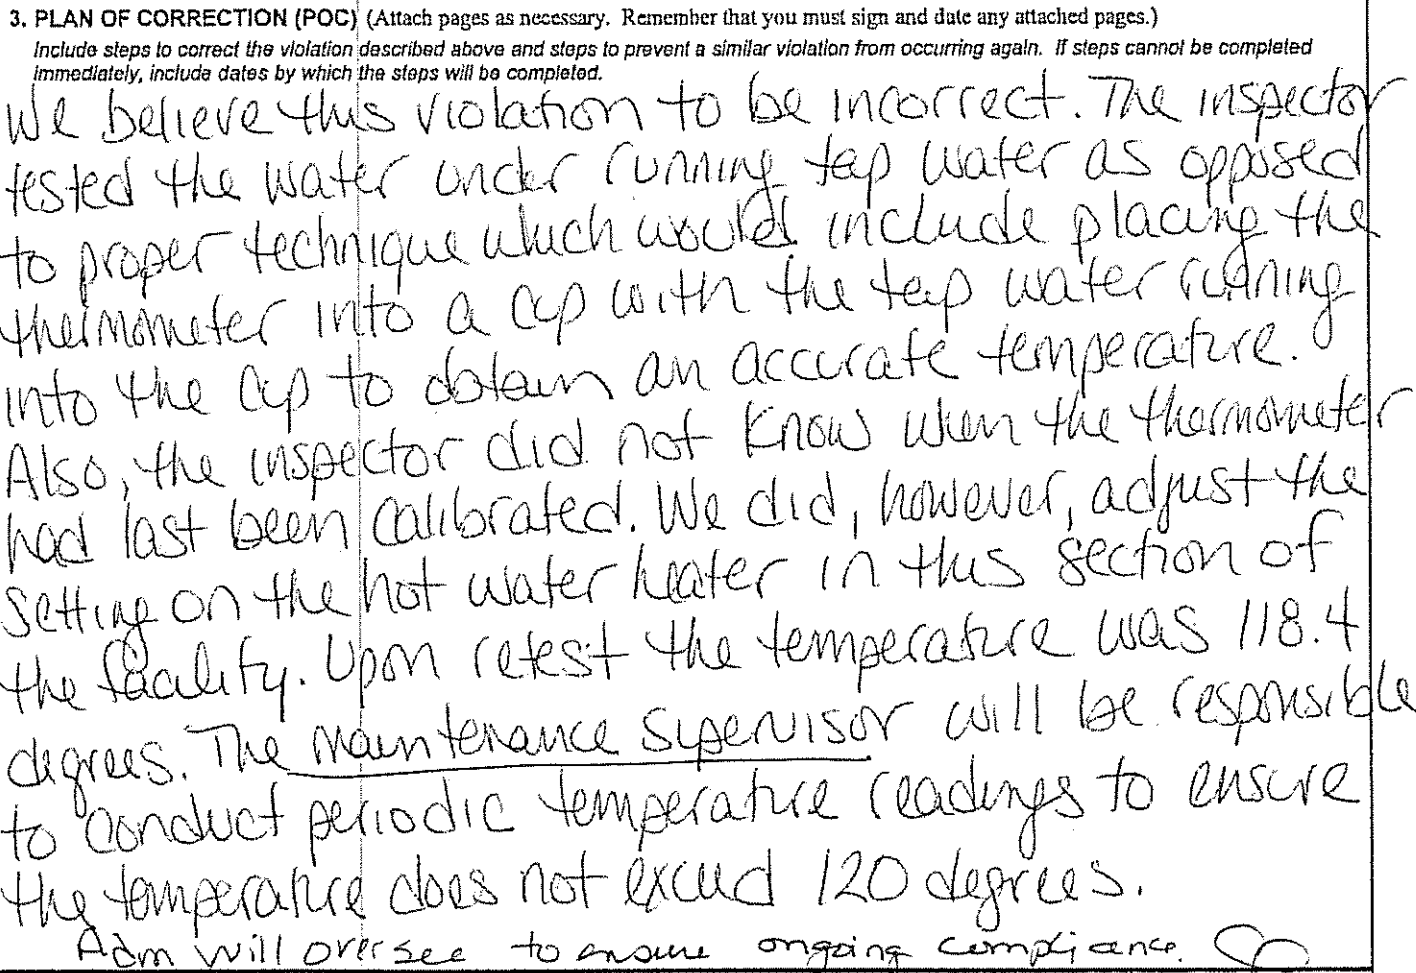 3. PLAN OF CORRECTION (POC) (Attach pages as necessary. Remember that you must sign and date any attached pages.)
Include steps to correct the violation described above and steps to prevent a similar violation from occurring again. If steps cannot be completed
immediately, include dates by which the steps will be completed.
We believe this violation to be incorrect. The inspector
tested the water under running tap water as opposed
to proper technique which would include placing the
thermometer into a cup with the tap water running
into the cup to obtain an accurate temperature.
Also, the inspector did not know when the thermometer
had last been calibrated. We did, however, adjust the
setting on the hot water heater in this section of
the facility. Upon retest the temperature was 118.4
degrees. The maintenance supervisor will be responsible
to conduct periodic temperature readings to ensure
the temperature does not exceed 120 degrees.
Adm will oversee to ensure ongoing compliance.